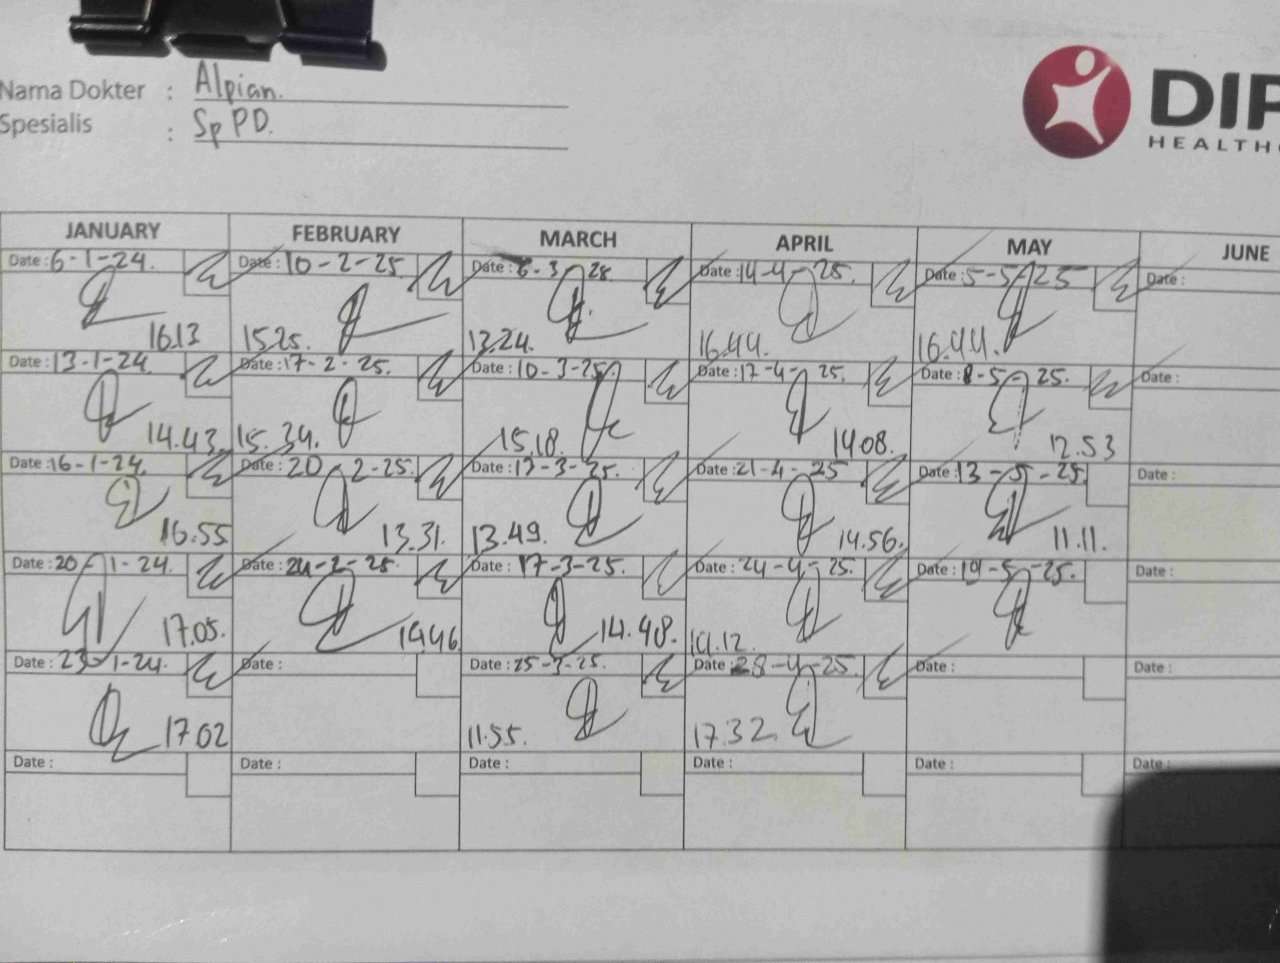 Nama Dokter : Alpian.
Spesialis : SpPD.
DIP
HEALTH
JANUARY FEBRUARY MARCH APRIL MAY JUNE
Date : 6-1-24. Date : 10-2-25. Date : 6-3-25. Date : 14-4-25. Date : 5-5-25 Date :
16.13 15.25. 13.24. 16.44. 16.44.
Date : 13-1-24. Date : 17-2-25. Date : 10-3-25. Date : 17-4-25. Date : 8-5-25. Date :
14.43. 15.34. 15.18. 14.08. 12.53
Date : 16-1-24. Date : 20-2-25. Date : 13-3-25. Date : 21-4-25 Date : 13-5-25. Date :
16.55 13.31. 13.49. 14.56. 11.11.
Date : 20-1-24. Date : 24-2-25. Date : 17-3-25. Date : 24-4-25. Date : 19-5-25. Date :
17.05. 14.48. 14.12.
Date : 23-1-24. Date : Date : 25-3-25. Date : 28-4-25 Date : Date :
17.02 11.55. 17.32.
Date : Date : Date : Date : Date : Date :